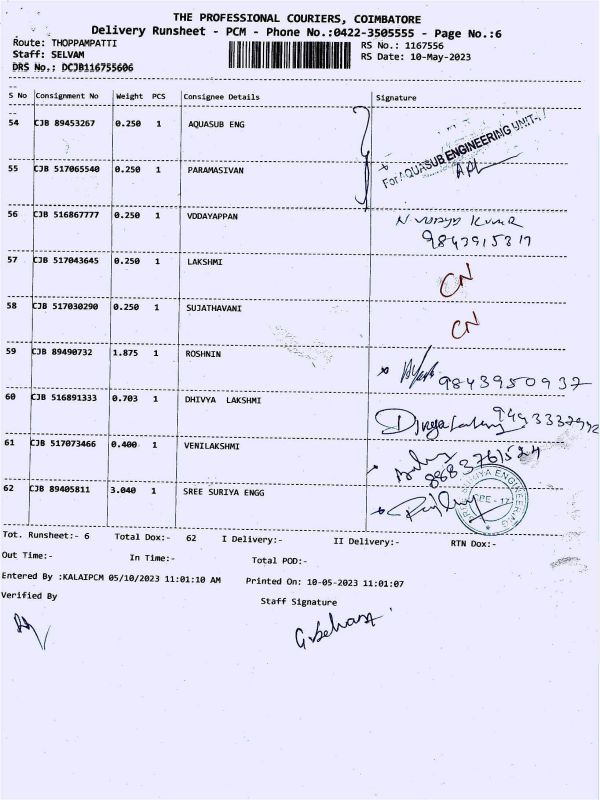 THE PROFESSIONAL COURIERS, COIMBATORE
Delivery Runsheet - PCM - Phone No.:0422-3505555 - Page No.:6
Route: THOPPAMPATTI RS No.: 1167556
Staff: SELVAM RS Date: 10-May-2023
DRS No.: DCJB116755606
S No Consignment No Weight PCS Consignee Details Signature
54 CJB 89453267 0.250 1 AQUASUB ENG
For AQUASUB ENGINEERING UNIT-
55 CJB 517065540 0.250 1 PARAMASIVAN
56 CJB 516867777 0.250 1 VDDAYAPPAN
9843915317
57 CJB 517043645 0.250 1 LAKSHMI CN
58 CJB 517030290 0.250 1 SUJATHAVANI CN
59 CJB 89490732 1.875 1 ROSHNIN 9843950937
60 CJB 516891333 0.703 1 DHIVYA LAKSHMI
61 CJB 517073466 0.400 1 VENILAKSHMI 8883761524
62 CJB 89405811 3.040 1 SREE SURIYA ENGG
Tot. Runsheet:- 6 Total Dox:- 62 I Delivery:- II Delivery:- RTN Dox:-
Out Time:- In Time:- Total POD:-
Entered By :KALAIPCM 05/10/2023 11:01:10 AM Printed On: 10-05-2023 11:01:07
Verified By Staff Signature